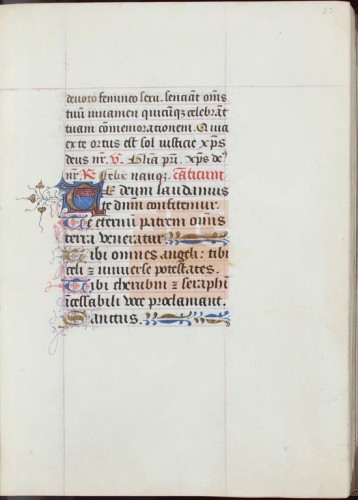 deuoto femineo sexu. senciant om̄s
tuū iuuamen quicūq; celebrāt
tuam cōmemorationem. Quia
ex te ortus est sol iusticie xp̄s
deus nr̄. V. Gl̄ia pr̄i. xp̄s de⁹
nr̄. R. Felix nanq;. cāticum
Te deum laudamus
te dnm̄ confitemur.
Te eternum patrem om̄is
terra veneratur.
Tibi omnes angeli: tibi
celi ⁊ vniuerse potestates.
Tibi cherubin ⁊ seraphī
īcessabili voce proclamant.
Sanctus.